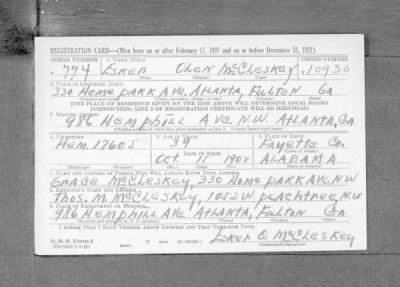 REGISTRATION CARD—(Men born on or after February 17, 1897 and on or before December 31, 1921)
SERIAL NUMBER 1. NAME (Print) ORDER NUMBER
T 774 Esker Olen McCleskey 10930
2. PLACE OF RESIDENCE (Print)
330 Home Park Ave, Atlanta, Fulton Ga
[THE PLACE OF RESIDENCE GIVEN ON THE LINE ABOVE WILL DETERMINE LOCAL BOARD
JURISDICTION; LINE 2 OF REGISTRATION CERTIFICATE WILL BE IDENTICAL]
3. MAILING ADDRESS
986 Hemphill Ave. N.W. Atlanta, Ga
4. TELEPHONE 5. AGE IN YEARS 6. PLACE OF BIRTH
Hem. 1760J 39 Fayette Co.
DATE OF BIRTH
Oct 15 1902 Alabama
7. NAME AND ADDRESS OF PERSON WHO WILL ALWAYS KNOW YOUR ADDRESS
Grace McCleskey, 330 Home Park Ave. N.W
8. EMPLOYER'S NAME AND ADDRESS
Thos. M. McCleskey, 1052 W. Peachtree, N.W
9. PLACE OF EMPLOYMENT OR BUSINESS
986 Hemphill Ave Atlanta, Fulton Ga
I AFFIRM THAT I HAVE VERIFIED ABOVE ANSWERS AND THAT THEY ARE TRUE.
Esker O. McCleskey